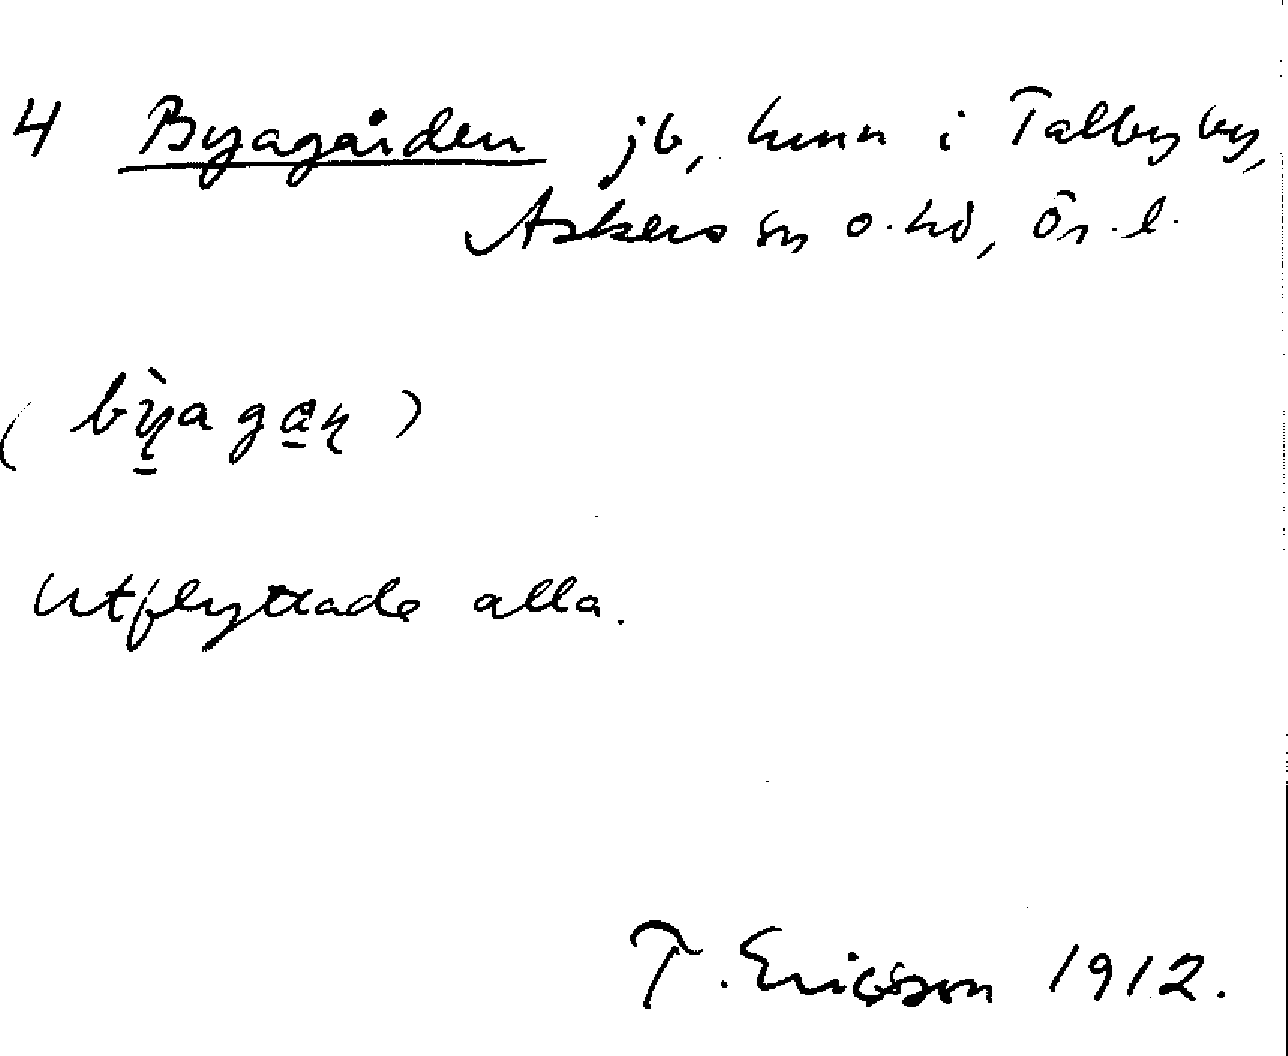 4 Byagården jb, hmn i Talby by,
Askers sn o. hd, Ör. l.
(bỳ̠aga̠ɳ)
Utflyttade alla.
T. Ericson 1912.